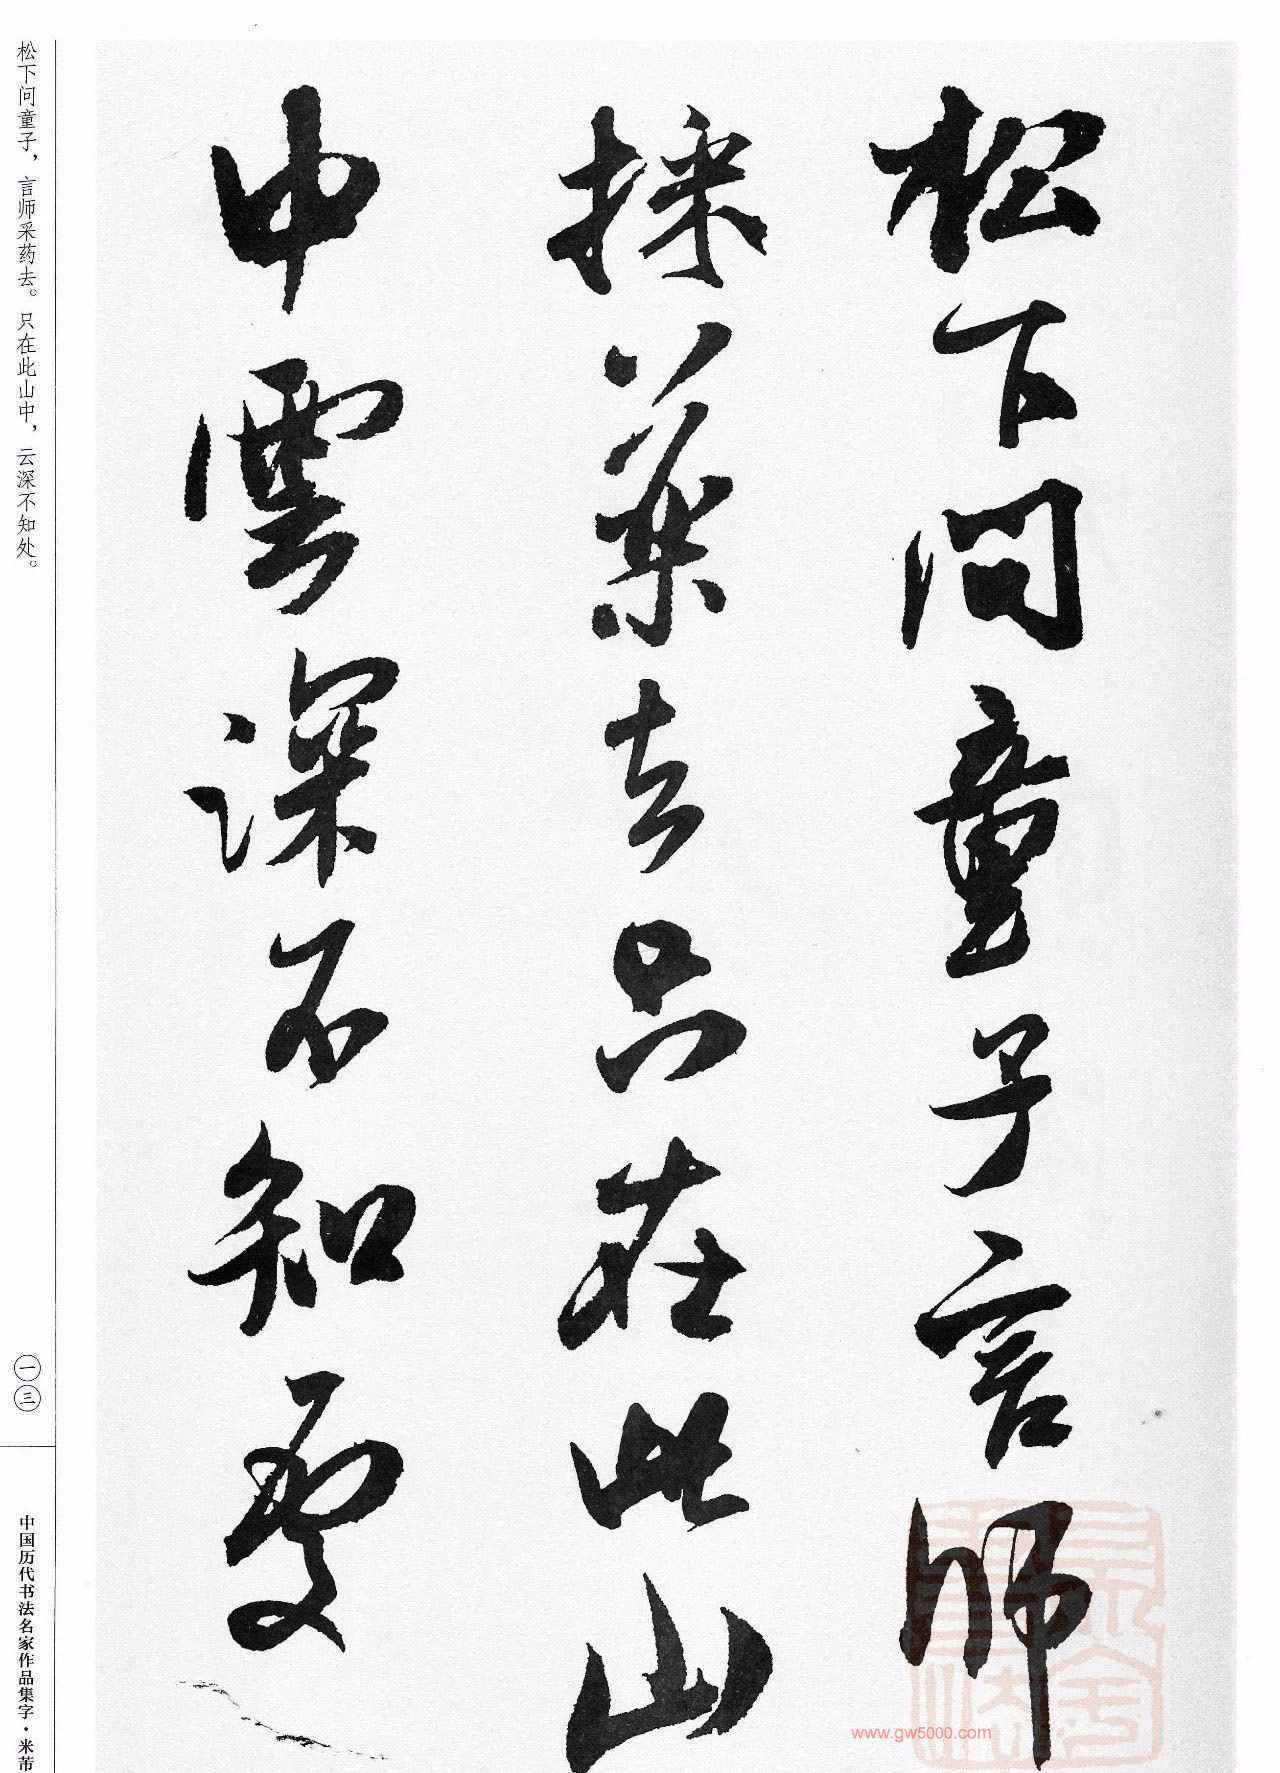 松下问童子言师
採薬去只在此山
中雲深不知処
松下问童子，言师采药去。只在此山中，云深不知处。
一三
中国历代书法名家作品集字·米芾
www.gw5000.com